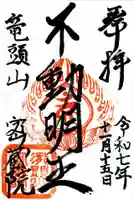 奉拝
令和七年
十一月十五日
不動明王
竜頭山
密蔵院